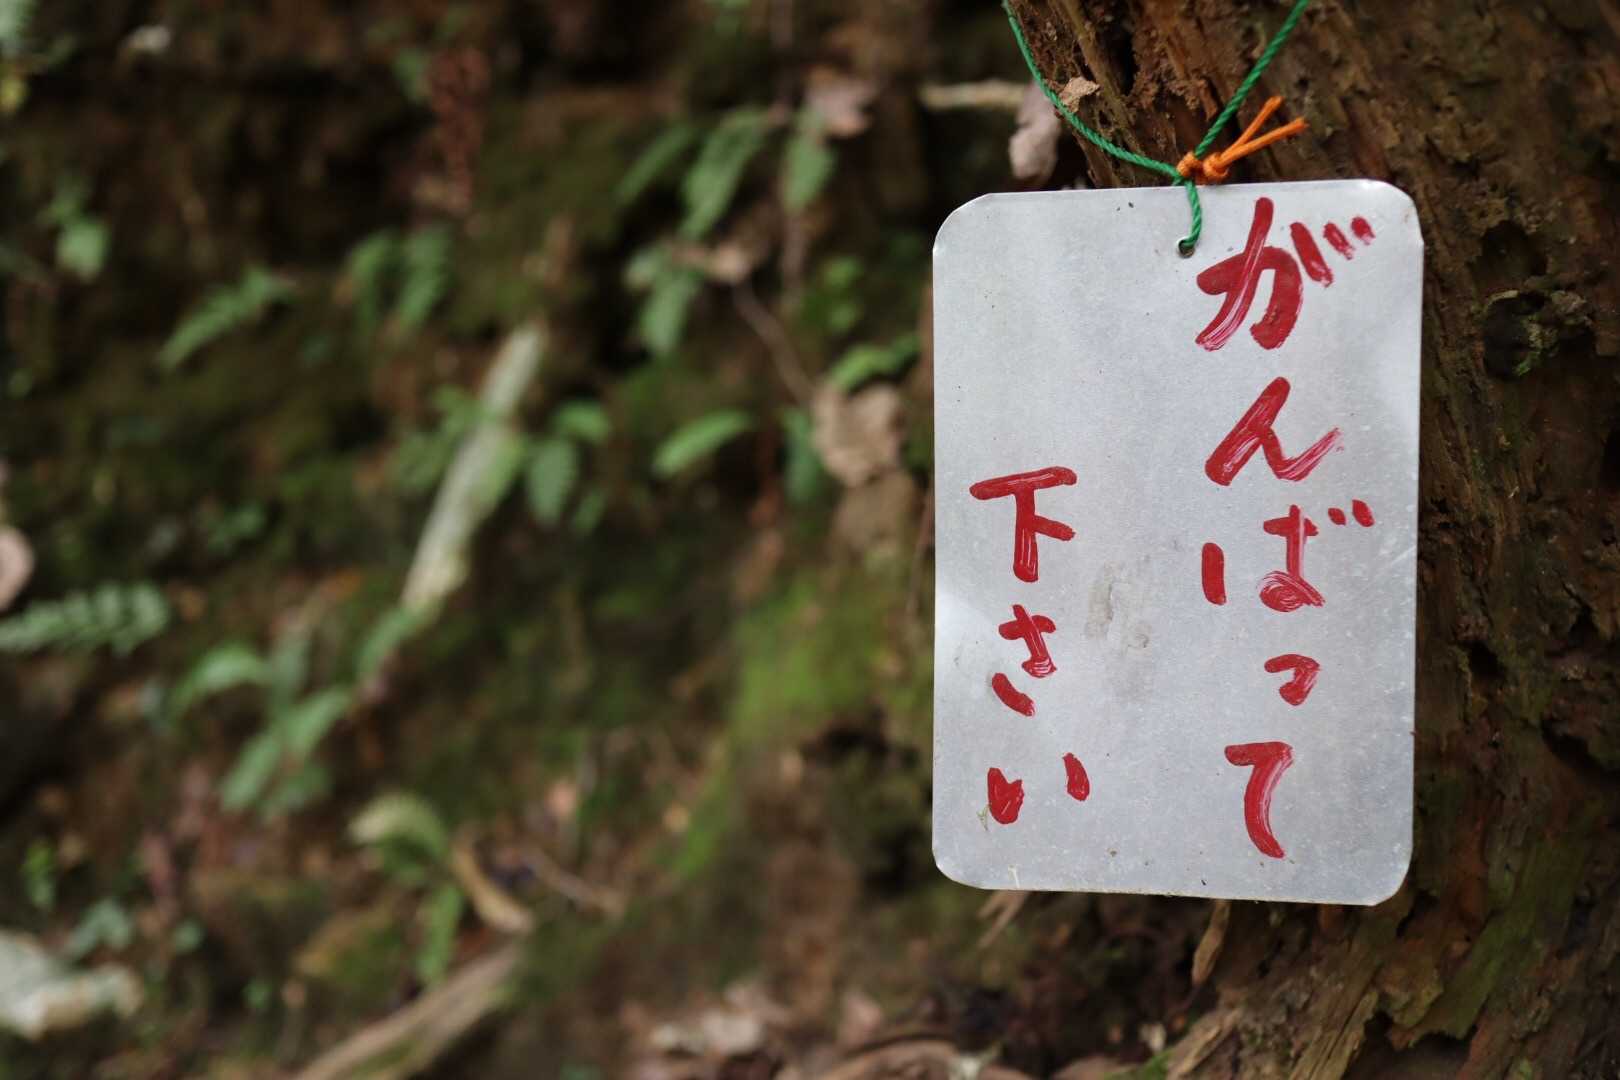 がんばって
下さい